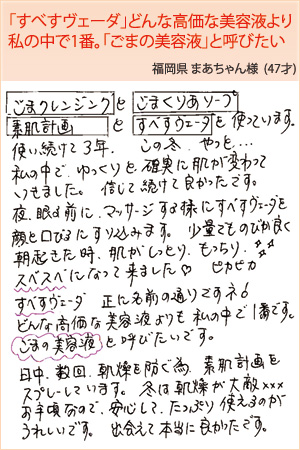 「すべすヴェーダ」どんな高価な美容液より
私の中で1番。「ごまの美容液」と呼びたい
福岡県 まあちゃん様 (47才)
ごまクレンジングとごまくりあソープ
素肌計画とすべすヴェーダを使っています。
使い続けて3年。この冬、やっと…
私の中で、ゆっくりと、確実に肌が変わって
いきました。信じて続けて良かったです。
夜、眠る前に、マッサージする様にすべすヴェーダを
顔と口びるにすり込みます。少量でものびが良く
朝起きた時、肌がしっとり、もっちり、
スベスベになって来ました♡ ピカピカ
すべすヴェーダ 正に名前の通りですネ!
どんな高価な美容液よりも私の中で1番です。
ごまの美容液と呼びたいです。
日中、数回、乾燥を防ぐ為、素肌計画を
スプレーしています。冬は乾燥が大敵×××
お手頃なので、安心して、たっぷり使えるのが
うれしいです。出会えて本当に良かったです。